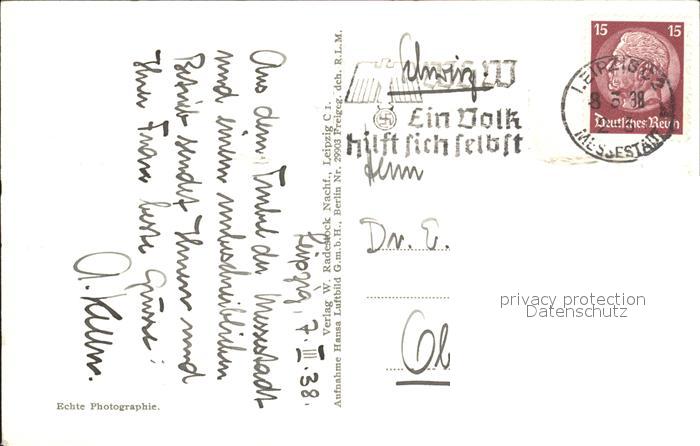 Leipzig, 7. III. 38.
Aus dem Trubel der Messestadt
und einem unbeschreiblichen
Betrieb sendet Ihnen und
Ihrer Frau beste Grüsse:
Verlag W. Radestock Nachf., Leipzig C 1.
Aufnahme Hansa Luftbild G.m.b.H., Berlin Nr. 29903 Freigeg. dch. R.L.M.
Echte Photographie.
Ein Volk
hilft sich selbst
15 15
Deutsches Reich
LEIPZIG C 2
MESSESTADT
Herrn
Dr. E.
privacy protection
Datenschutz